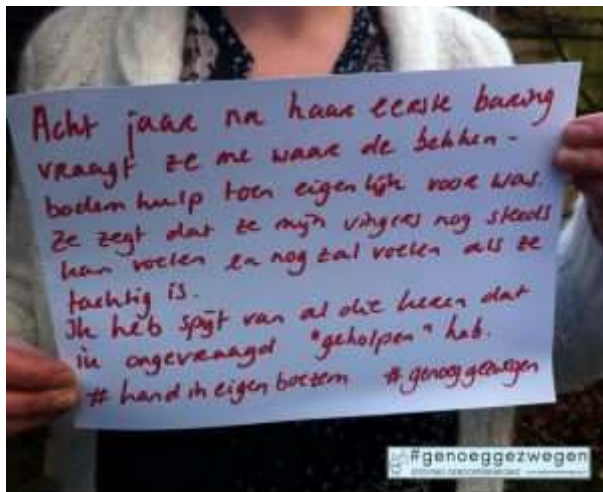 Acht jaar na haar eerste baring
vraagt ze me waar de bekken-
bodem hulp toen eigenlijk voor was.
Ze zegt dat ze mijn vingers nog steeds
kan voelen en nog zal voelen als ze
tachtig is.
Ik heb spijt van al die keren dat
ik ongevraagd "geholpen" heb.
# hand in eigen boezem #genoeggezwegen
#genoeggezwegen